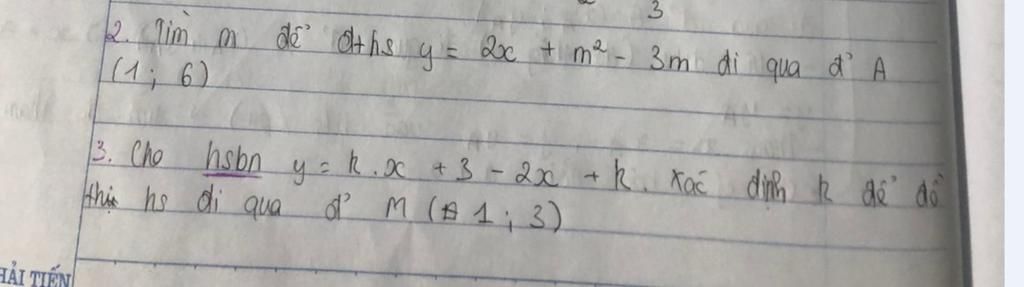 3
2. Tìm m để đths y = 2x + m² - 3m đi qua đ' A
(1; 6)
3. Cho hsbn y = k.x + 3 - 2x + k. Xác định k để đồ
thị hs đi qua đ' M (1; 3)
HẢI TIẾN